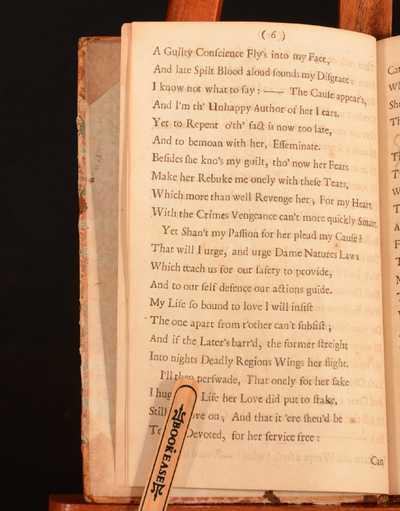 ( 6 )
A Guilty Conscience Fly's into my Face,
And late Spilt Blood aloud sounds my Disgrace:
I know not what to say: —— The Cause appear's,
And I'm th' Unhappy Author of her Tears.
Yet to Repent o'th' fact is now too late,
And to bemoan with her, Effeminate.
Besides she kno's my guilt, tho' now her Fears
Make her Rebuke me onely with these Tears,
Which more than well Revenge her; For my Heart
With the Crimes Vengeance can't more quickly Smart.
Yet Shan't my Passion for her plead my Cause?
That will I urge, and urge Dame Natures Laws
Which teach us for our safety to provide,
And to our self defence our actions guide.
My Life so bound to love I will insist
The one apart from t'other can't subsist;
And if the Later's barr'd, the former streight
Into nights Deadly Regions Wings her flight.
I'll then perswade, That onely for her sake
I Life her Love did put to stake,
Still ove on, And that it 'ere shou'd be
To Devoted, for her service free:
Can
BOOKEASE